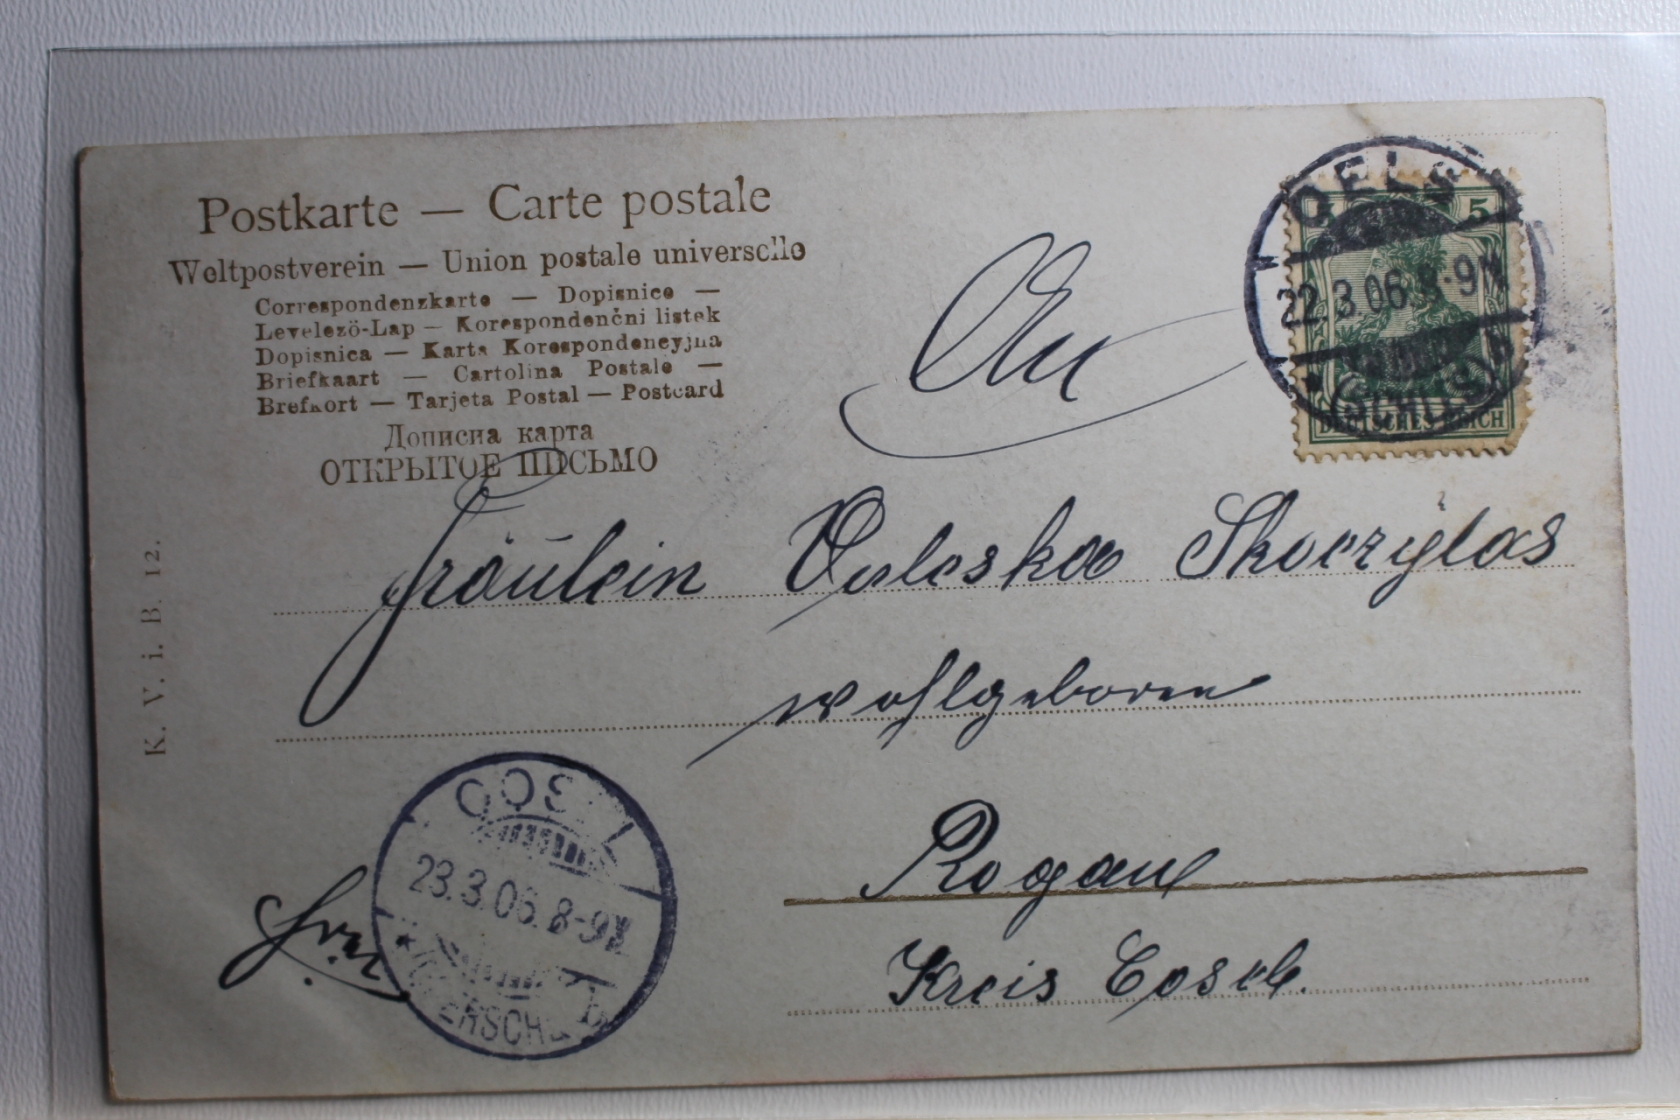 Postkarte — Carte postale
Weltpostverein — Union postale universelle
Correspondenzkarte — Dopisnice —
Levelező-Lap — Korespondenčni listek
Dopisnica — Karta Korespondencyjna
Briefkaart — Cartolina Postale —
Brefkort — Tarjeta Postal — Postcard
Дописна карта
ОТКРЫТОЕ ПИСЬМО
An
OELS
22.3.06. 8-9N
(SCHLES)
5
DEUTSCHES REICH
Fräulein Valeska Skoczylas
wohlgeboren
Rogau
Kreis Cosel.
frei
COSEL
23.3.06. 8-9V
K. V. i. B. 12.